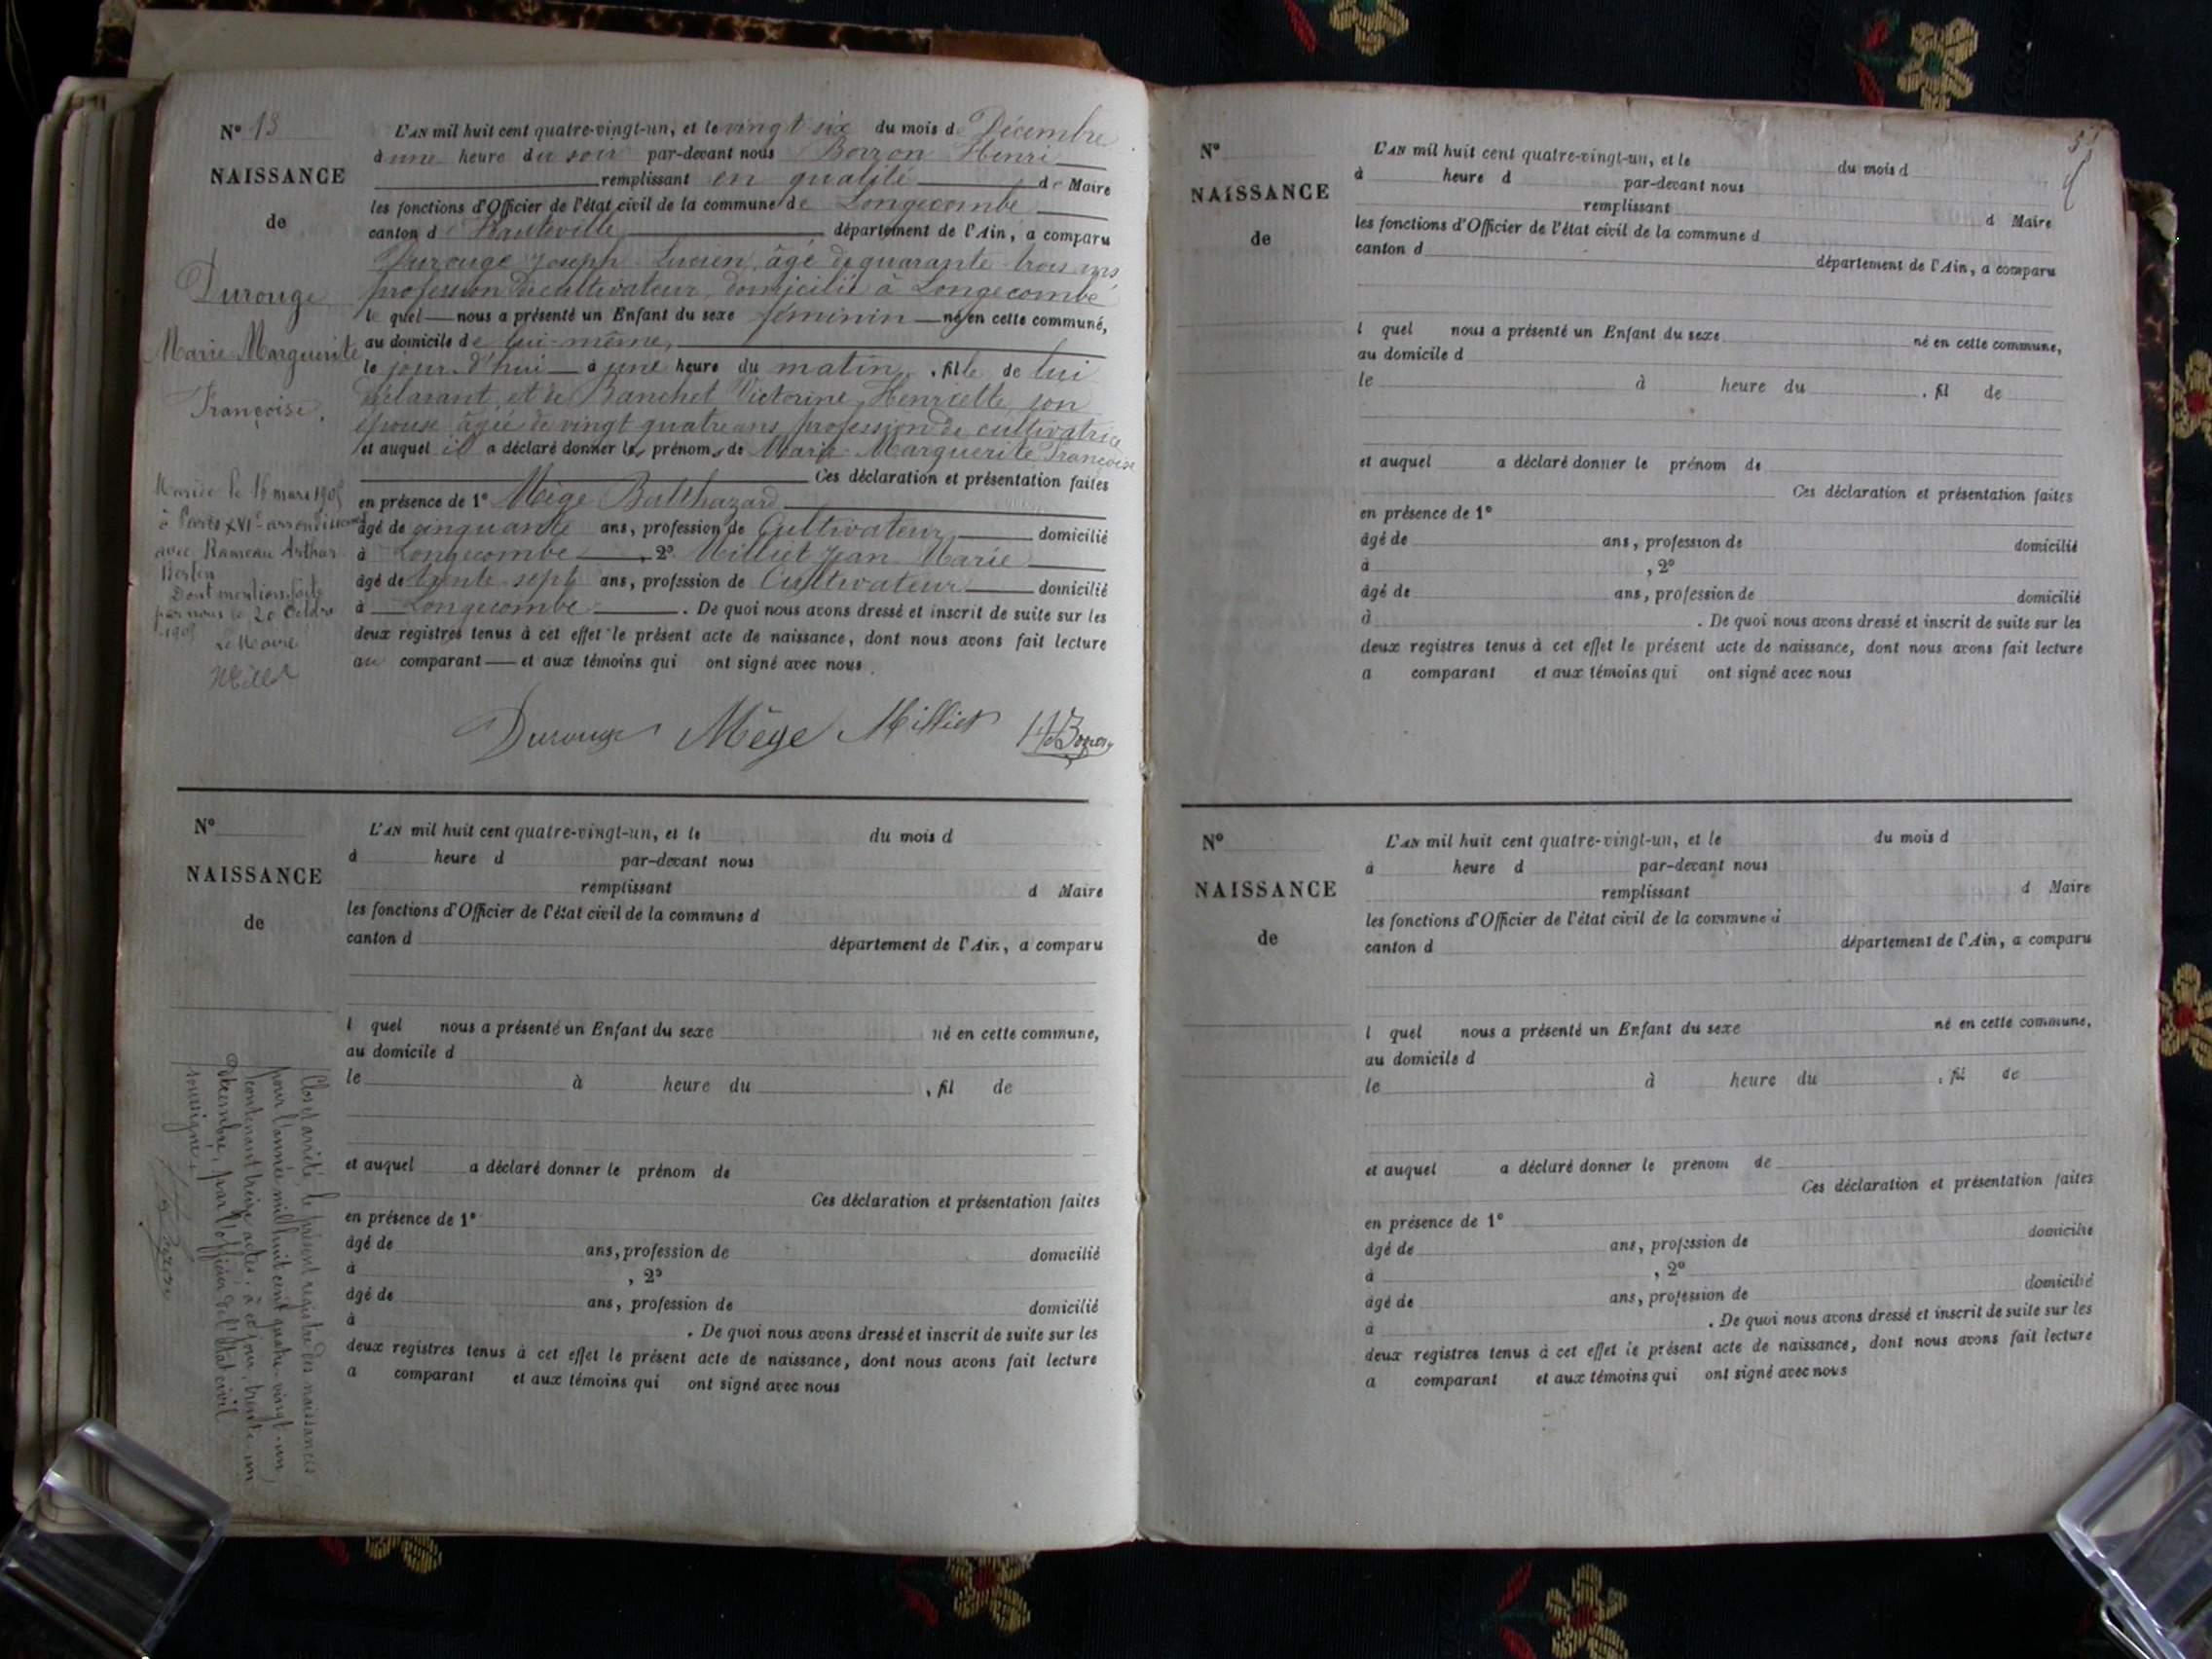 N° 13
NAISSANCE
de
Durouge
Marie Marguerite
Françoise.
L'AN mil huit cent quatre-vingt-un, et le vingt six du mois de Décembre
à une heure du soir par-devant nous Borron Henri
remplissant en qualité de Maire
les fonctions d'Officier de l'état civil de la commune de Longecombe
canton d'Hauteville département de l'Ain, a comparu
Durouge Joseph Lucien, âgé de quarante trois ans
profession de cultivateur, domicilié à Longecombe
le quel nous a présenté un Enfant du sexe féminin né en cette commune,
au domicile de lui-même,
le jour d'hui à une heure du matin, fille de lui
déclarant et de Banchet Victorine Henriette son
épouse âgée de vingt quatre ans, profession de cultivatrice
et auquel il a déclaré donner les prénoms de Marie Marguerite Françoise
Ces déclaration et présentation faites
en présence de 1° Mège Balthazard
âgé de cinquante ans, profession de Cultivateur domicilié
à Longecombe, 2° Milliet Jean Marie
âgé de trente sept ans, profession de Cultivateur domicilié
à Longecombe. De quoi nous avons dressé et inscrit de suite sur les
deux registres tenus à cet effet le présent acte de naissance, dont nous avons fait lecture
au comparant et aux témoins qui ont signé avec nous.
Mariée le 18 mars 1905
à Paris XVIe arrondissement
avec Rameau Arthur
Dont mention faite
par nous le 20 Octobre
1905
Le Maire
Durouge Mège Milliet
N°
NAISSANCE
de
L'AN mil huit cent quatre-vingt-un, et le du mois d
à heure d par-devant nous
remplissant d Maire
les fonctions d'Officier de l'état civil de la commune d
canton d département de l'Ain, a comparu
l quel nous a présenté un Enfant du sexe né en cette commune,
au domicile d
le à heure du , fil de
et auquel a déclaré donner le prénom de
Ces déclaration et présentation faites
en présence de 1°
âgé de ans, profession de domicilié
à , 2°
âgé de ans, profession de domicilié
à . De quoi nous avons dressé et inscrit de suite sur les
deux registres tenus à cet effet le présent acte de naissance, dont nous avons fait lecture
a comparant et aux témoins qui ont signé avec nous
Clos et arrêté le présent registre des naissances
pour l'année mil huit cent quatre-vingt-un,
contenant treize actes, à ce jour, trente-un
Décembre, par l'officier de l'état civil
soussigné.
N°
NAISSANCE
de
L'AN mil huit cent quatre-vingt-un, et le du mois d
à heure d par-devant nous
remplissant d Maire
les fonctions d'Officier de l'état civil de la commune d
canton d département de l'Ain, a comparu
l quel nous a présenté un Enfant du sexe né en cette commune,
au domicile d
le à heure du , fil de
et auquel a déclaré donner le prénom de
Ces déclaration et présentation faites
en présence de 1°
âgé de ans, profession de domicilié
à , 2°
âgé de ans, profession de domicilié
à . De quoi nous avons dressé et inscrit de suite sur les
deux registres tenus à cet effet le présent acte de naissance, dont nous avons fait lecture
a comparant et aux témoins qui ont signé avec nous
N°
NAISSANCE
de
L'AN mil huit cent quatre-vingt-un, et le du mois d
à heure d par-devant nous
remplissant d Maire
les fonctions d'Officier de l'état civil de la commune d
canton d département de l'Ain, a comparu
l quel nous a présenté un Enfant du sexe né en cette commune,
au domicile d
le à heure du , fil de
et auquel a déclaré donner le prénom de
Ces déclaration et présentation faites
en présence de 1°
âgé de ans, profession de domicilié
à , 2°
âgé de ans, profession de domicilié
à . De quoi nous avons dressé et inscrit de suite sur les
deux registres tenus à cet effet le présent acte de naissance, dont nous avons fait lecture
a comparant et aux témoins qui ont signé avec nous